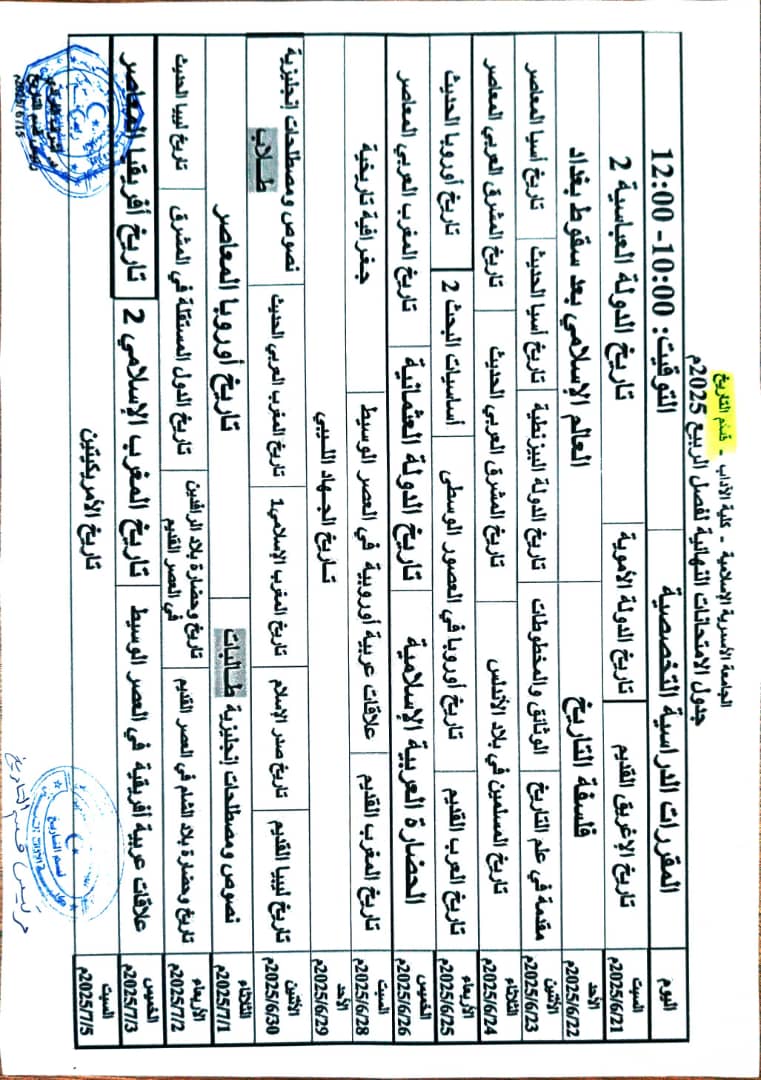 الجامعة الأسمرية الإسلامية - كلية الآداب - قسم التاريخ
جدول الامتحانات النهائية لفصل الربيع 2025م
اليوم المقررات الدراسية التخصصية التوقيت: 10:00- 12:00
السبت 2025/6/21م تاريخ الإغريق القديم تاريخ الدولة الأموية تاريخ الدولة العباسية 2
الأحد 2025/6/22م فلسفة التاريخ العالم الإسلامي بعد سقوط بغداد
الأثنين 2025/6/23م مقدمة في علم التاريخ الوثائق والمخطوطات تاريخ الدولة البيزنطية تاريخ أسيا الحديث تاريخ أسيا المعاصر
الثلاثاء 2025/6/24م تاريخ المسلمين في بلاد الأندلس تاريخ المشرق العربي الحديث تاريخ المشرق العربي المعاصر
الأربعاء 2025/6/25م تاريخ العرب القديم تاريخ أوروبا في العصور الوسطى أساسيات البحث 2 تاريخ أوروبا الحديث
الخميس 2025/6/26م الحضارة العربية الإسلامية تاريخ الدولة العثمانية تاريخ المغرب العربي المعاصر
السبت 2025/6/28م تاريخ المغرب القديم علاقات عربية أوروبية في العصر الوسيط جغرافية تاريخية
الأحد 2025/6/29م تاريخ الجهاد الليبي
الأثنين 2025/6/30م تاريخ ليبيا القديم تاريخ صدر الإسلام تاريخ المغرب الإسلامي1 تاريخ المغرب العربي الحديث نصوص ومصطلحات إنجليزية طــلاب
الثلاثاء 2025/7/1م نصوص ومصطلحات إنجليزية طــالبات تاريخ أوروبا المعاصر
الأربعاء 2025/7/2م تاريخ وحضارة بلاد الشام في العصر القديم تاريخ وحضارة بلاد الرافدين في العصر القديم تاريخ الدول المستقلة في المشرق تاريخ ليبيا الحديث
الخميس 2025/7/3م علاقات عربية أفريقية في العصر الوسيط تاريخ المغرب الإسلامي 2 تاريخ أفريقيا المعاصر
السبت 2025/7/5م تاريخ الأمريكيتين
رئيس قسم التاريخ
قسم التاريخ
رئيس قسم التاريخ
2025/6/15م